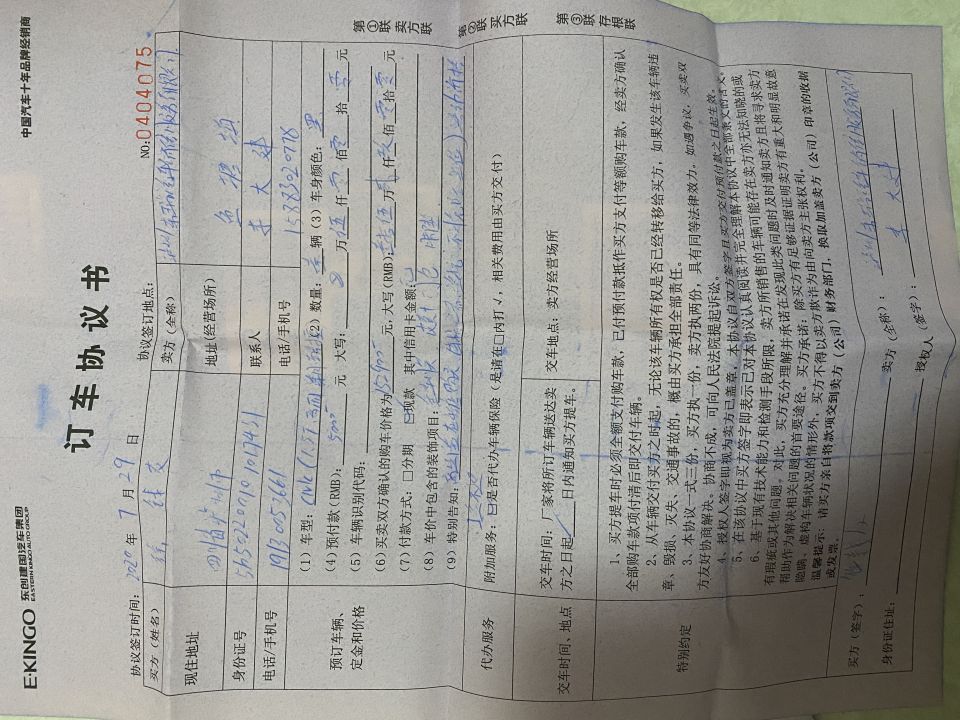 E·KINGO 东创建国汽车集团
EASTERN KINGO AUTO GROUP
中国汽车十年品牌经销商
订车协议书
NO:0404075
协议签订时间: 2020 年 7 月 29 日
协议签订地点:
买方(姓名)
卖方(全称)
现住地址
地址(经营场所)
身份证号
联系人
电话/手机号
电话/手机号
预订车辆、定金和价格
(1)车型: (2)数量: 辆 (3)车身颜色: 黑
(4)预付款(RMB): 5000 元 大写: 万 伍 仟 零 佰 零 拾 零 元
(5)车辆识别代码:
(6)买卖双方确认的购车价格为 元,大写(RMB): 万 仟 佰 拾 元
(7)付款方式:□分期 ☑现款 其中信用卡金额:
(8)车价中包含的装饰项目:
(9)特别告知:
代办服务
附加服务:☑是否代办车辆保险(是请在□内打√,相关费用由买方交付)
交车时间、地点
交车时间:厂家将所订车辆送达卖方之日起 日内通知买方提车。
交车地点:卖方经营场所
特别约定
1、买方提车时必须全额支付购车款,已付预付款抵作买方支付等额购车款,经卖方确认
全部购车款项付清后即交付车辆。
2、从车辆交付买方之时起,无论该车辆所有权是否已经转移给买方,如果发生该车辆违
章、毁损、灭失、交通事故的,概由买方承担全部责任。
3、本协议一式三份,买方执一份,卖方执两份,具有同等法律效力。如遇争议,买卖双
方友好协商解决。协商不成,可向人民法院提起诉讼。
4、授权人签字即视为卖方已盖章,本协议自双方签字且买方交付预付款之日起生效。
5、在该协议中买方签字即表示已对本协议认真阅读并完全理解本协议中全部条文的含义。
6、基于现有技术能力和检测手段所限,卖方所销售的车辆可能存在卖方亦无法知晓的或
有瑕疵或其他问题。对此,买方充分理解并承诺在发现此类问题时及时通知卖方且将寻求卖方
帮助作为解决相关问题的首要途径。买方承诺:除买方有足够证据证明卖方有重大和明显故意
隐瞒、虚构车辆状况的情形外,买方不得以卖方欺诈为由向卖方主张权利。
温馨提示:请买方亲自将款项交到卖方(公司)财务部门,换取加盖卖方(公司)印章的收据
或发票。
买方(签字):
卖方(全称):
身份证住址:
授权人(签字):
第①联 卖方联
第②联 买方联
第③联 存根联